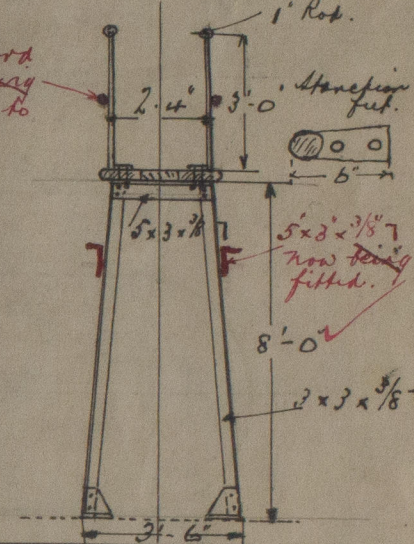 1" Rod.
rd
ing
to
2'-4"
3'-0"
Stanchion
feet.
6"
5 x 3 x 3/8
5" x 3" x 3/8"
now being
fitted.
8'-0"
3 x 3 x 3/8
3'-6"